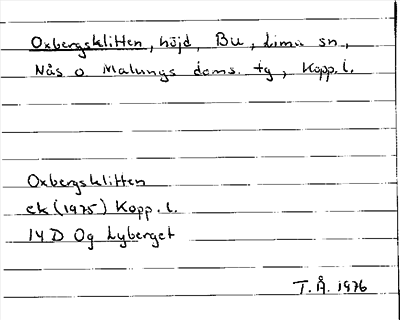 Oxbergsklitten, höjd, Bu, Lima sn,
Nås o. Malungs doms. tg, Kopp.l.
Oxbergsklitten
ek (1975) Kopp.l.
14D Og Lyberget
T.Å. 1976